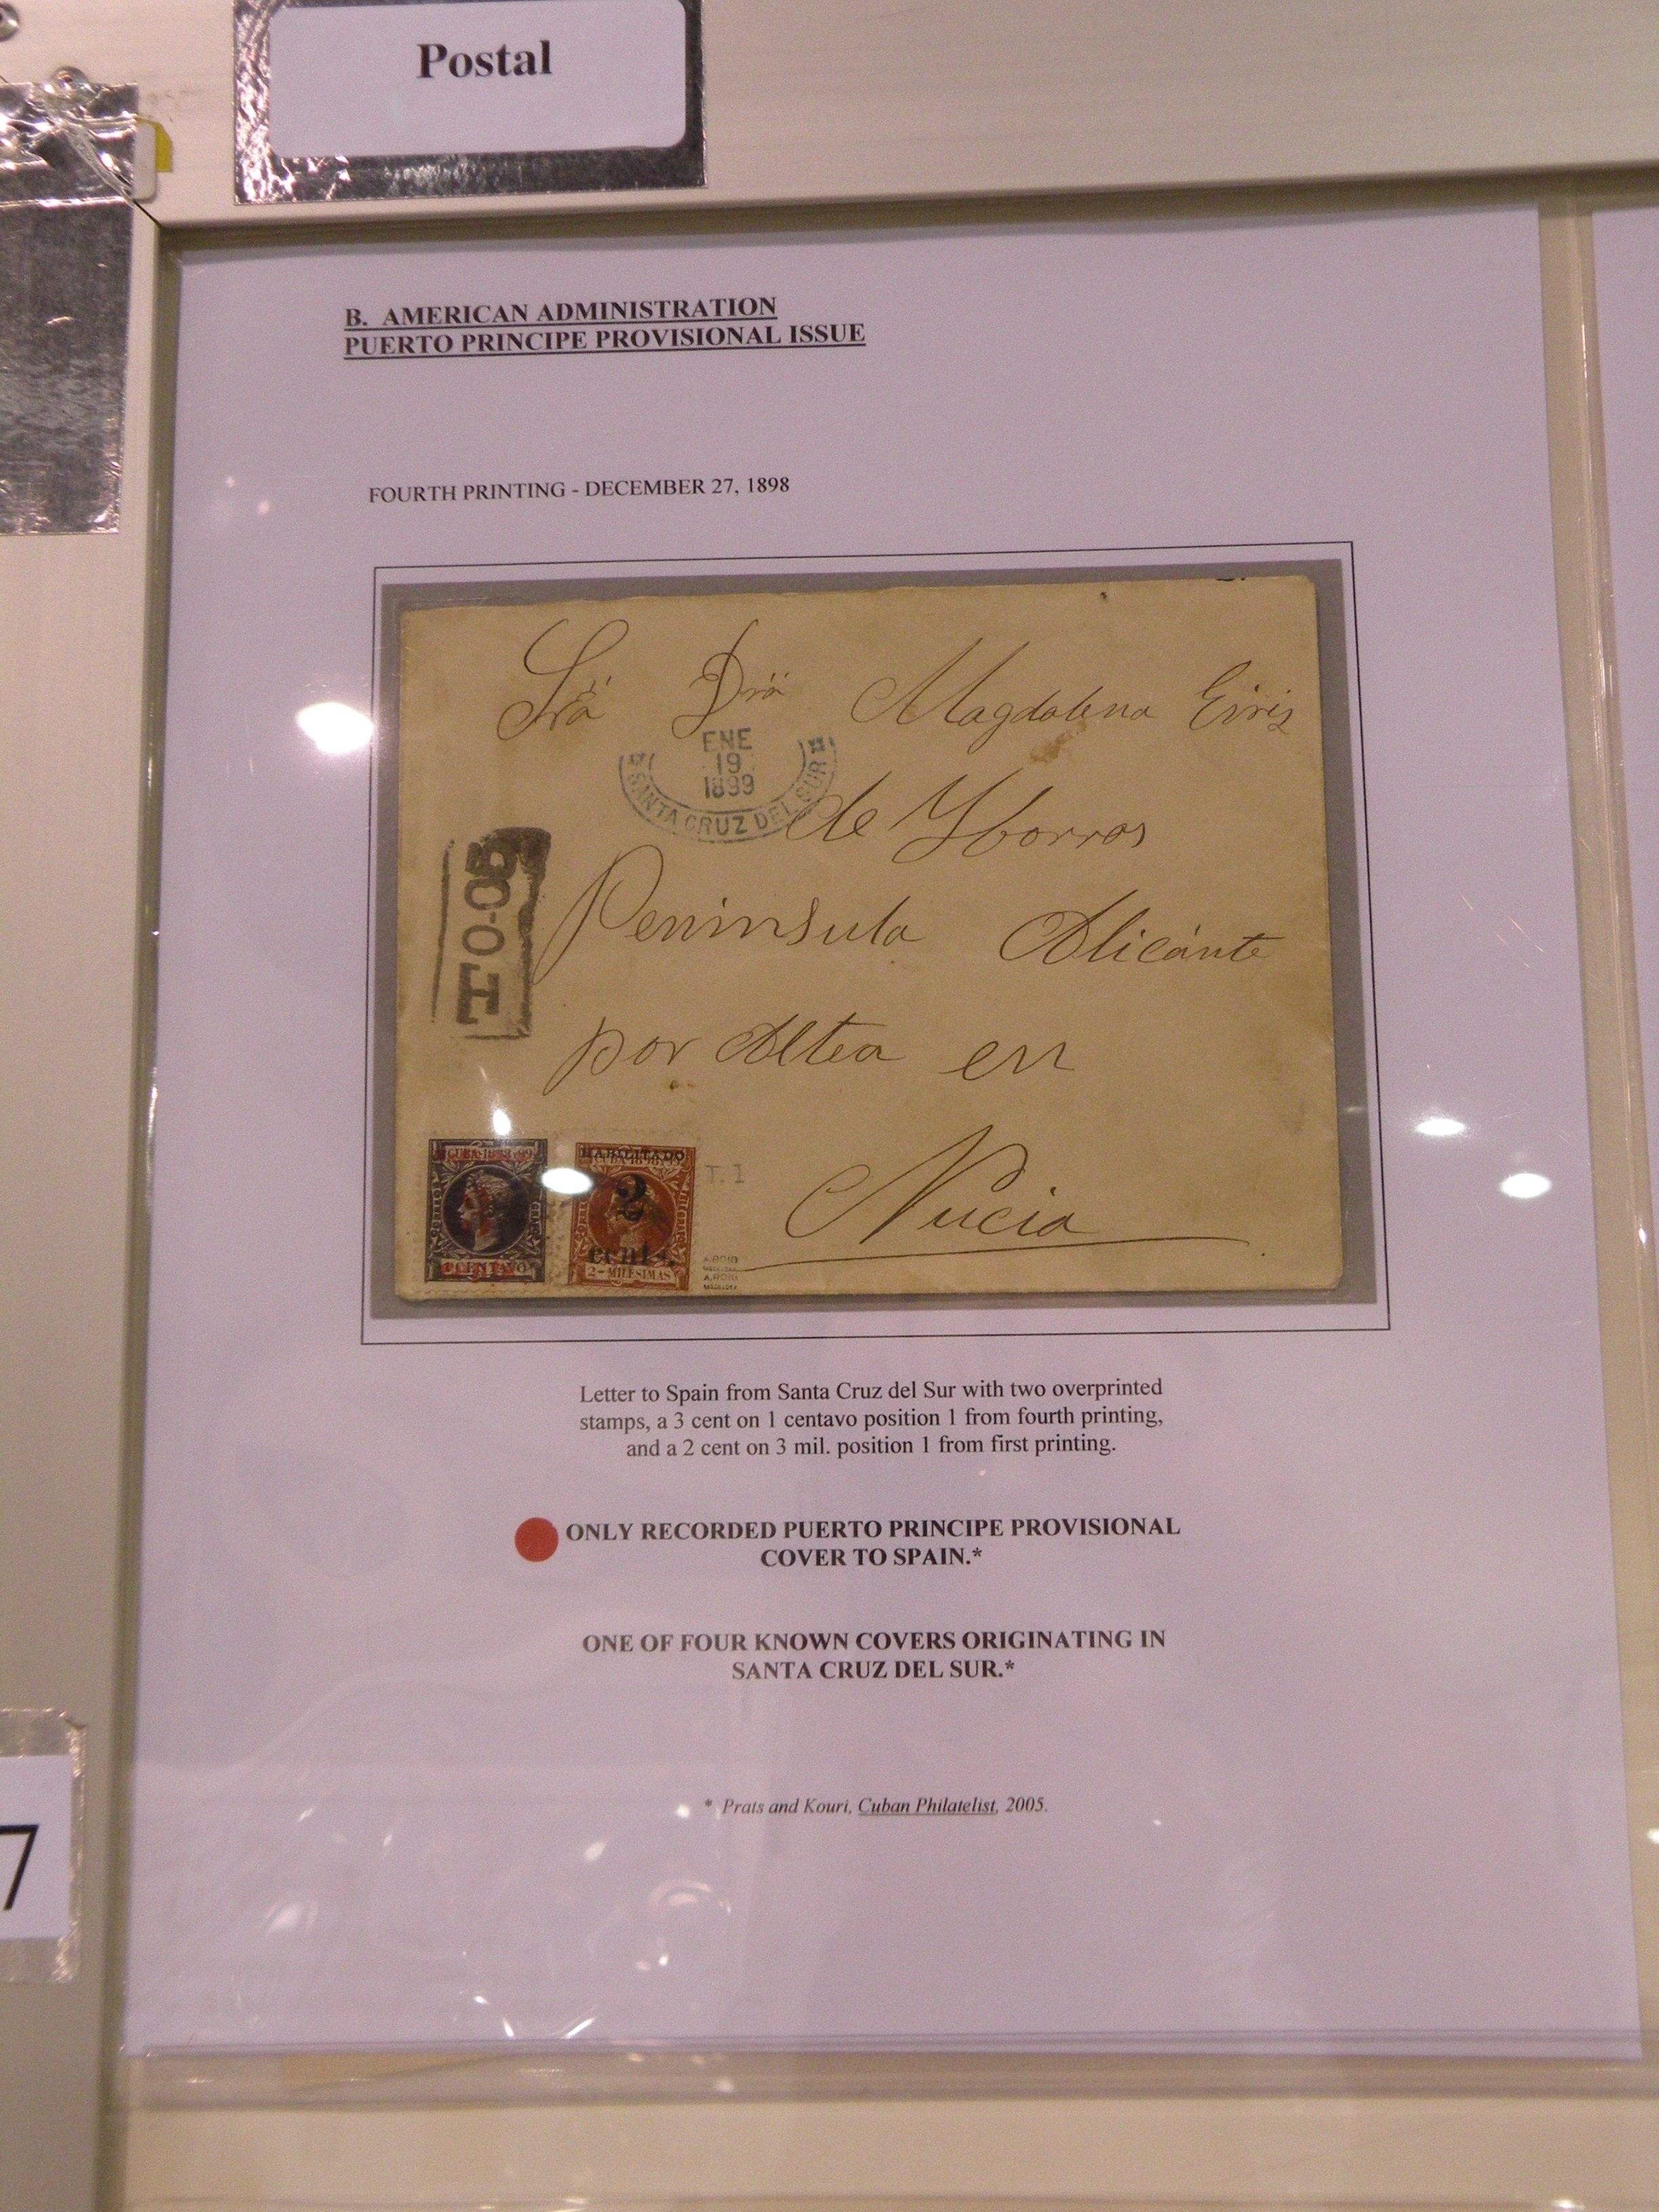 Postal
B. AMERICAN ADMINISTRATION
PUERTO PRINCIPE PROVISIONAL ISSUE
FOURTH PRINTING - DECEMBER 27, 1898
Sra Dra Magdalena Eiris
ENE
19
1899
SANTA CRUZ DEL SUR
de Yborros
T-0-05
Peninsula Alicánte
por Altea en
Nucia
CUBA 1898-99
1 CENTAVO
HABILITADO
2
cents.
2-MILESIMAS
T. I
A.ROIG
A.ROIG
Letter to Spain from Santa Cruz del Sur with two overprinted
stamps, a 3 cent on 1 centavo position 1 from fourth printing,
and a 2 cent on 3 mil. position 1 from first printing.
ONLY RECORDED PUERTO PRINCIPE PROVISIONAL
COVER TO SPAIN.*
ONE OF FOUR KNOWN COVERS ORIGINATING IN
SANTA CRUZ DEL SUR.*
* Prats and Kouri, Cuban Philatelist, 2005.
7